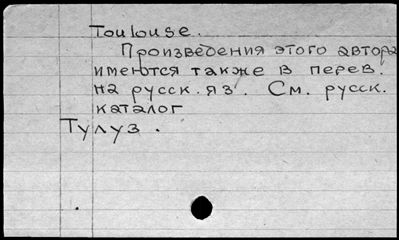 Toulouse.
Произведения этого автора
имеются также в перев.
на русск. яз. См. русск.
каталог
Тулуз.